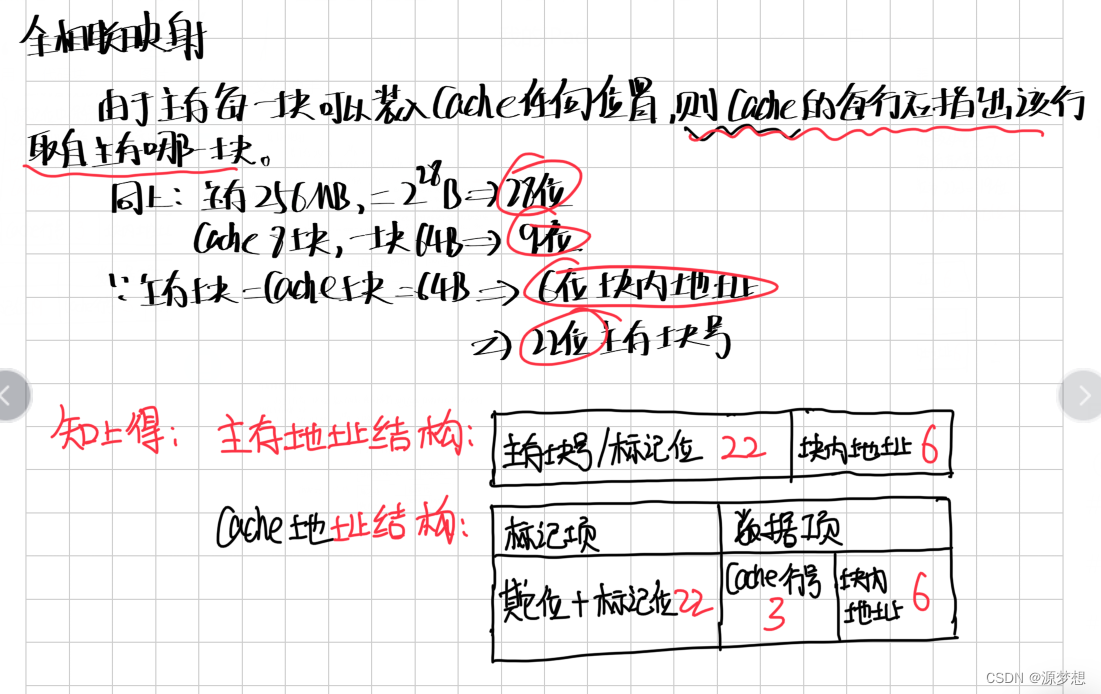 全相联映射
由于主存每一块可以装入Cache任何位置,则Cache的每行应指出该行
取自主存哪一块。
同上:主存256MB,=2^28B⇒28位
Cache 8块,一块64B⇒9位
∵主存块=Cache块=64B⇒6位块内地址
⇒22位主存块号
知上得:主存地址结构:
主存块号/标记位 22 块内地址 6
Cache地址结构:
标记项 数据项
其它位+标记位22 Cache行号 3 块内地址 6
CSDN @源梦想